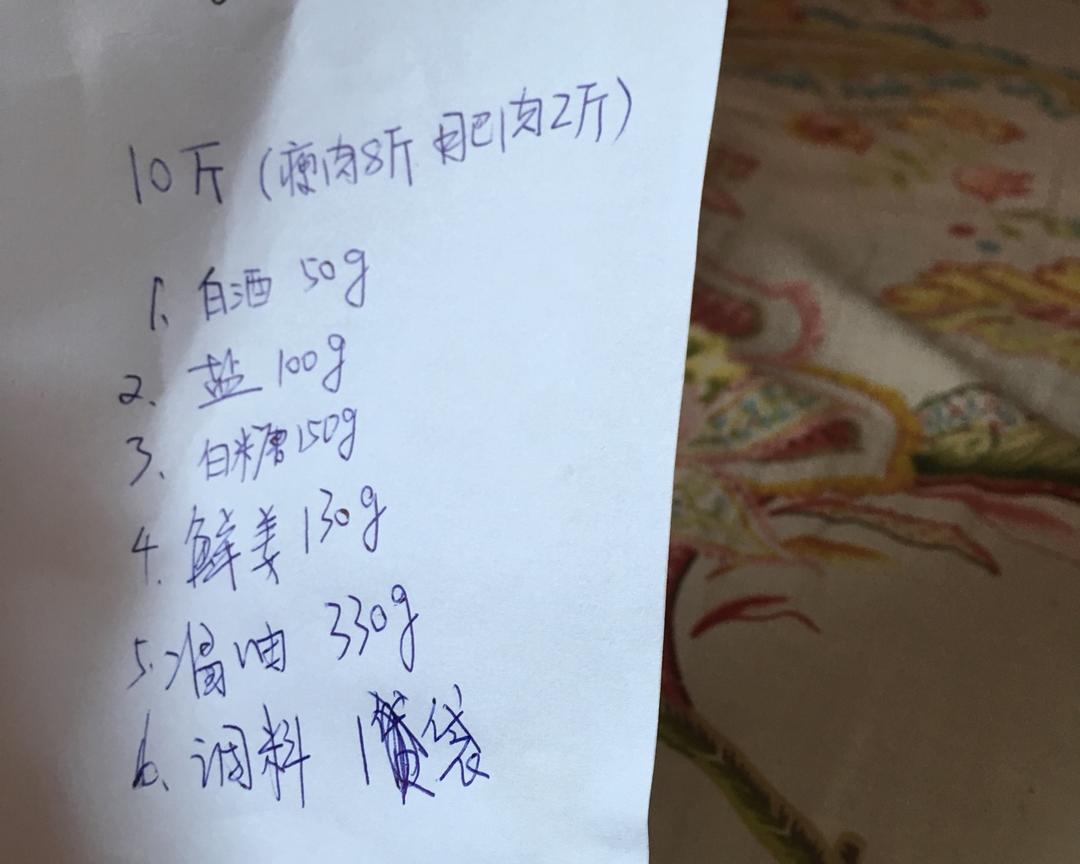 10斤(瘦肉8斤 肥肉2斤)
1、白酒 50g
2、盐 100g
3、白糖150g
4、鲜姜 130g
5、酱油 330g
6、调料 1袋